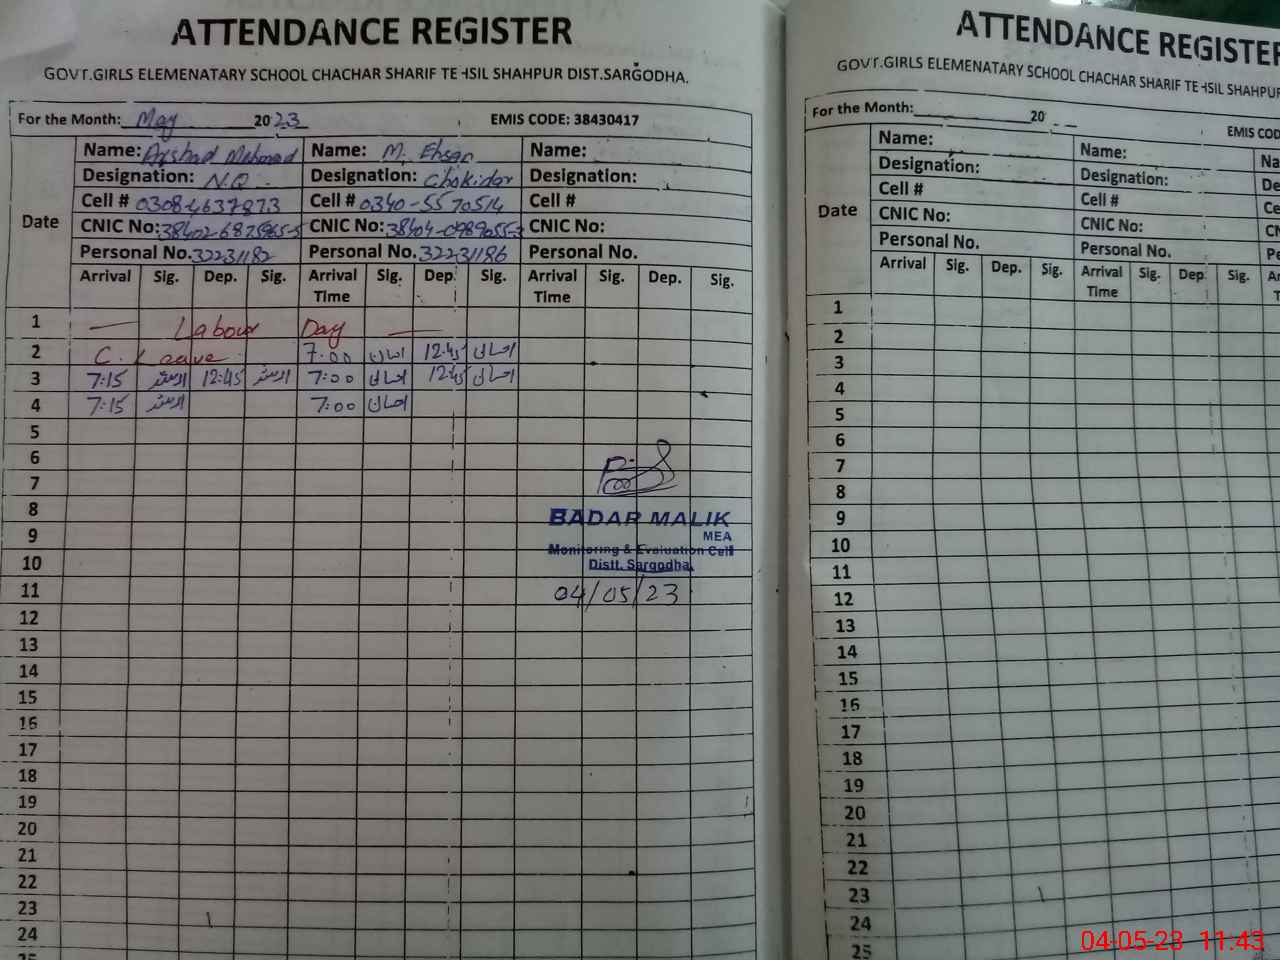 ATTENDANCE REGISTER
GOVT.GIRLS ELEMENATARY SCHOOL CHACHAR SHARIF TEHSIL SHAHPUR DIST.SARGODHA.
For the Month: May 2023 EMIS CODE: 38430417
Name: Arshad Mehmood Name: M. Ehsan Name:
Designation: N.Q Designation: Chokidar Designation:
Cell # 0308-4637873 Cell # 0340-5570514 Cell #
Date
CNIC No: CNIC No: CNIC No:
Personal No. 32231182 Personal No. 32231186 Personal No.
Arrival Sig. Dep. Sig. Arrival Time Sig. Dep. Sig. Arrival Time Sig. Dep. Sig.
1 Labour Day
2 C. Leave 7:00 احسان 12:45 احسان
3 7:15 ارشد 12:45 ارشد 7:00 احسان 12:45 احسان
4 7:15 ارشد 7:00 احسان
5
6
7
8
BADAR MALIK
MEA
9
Monitoring & Evaluation Cell
10
Distt. Sargodha.
11 04/05/23
12
13
14
15
16
17
18
19
20
21
22
23
24
25
ATTENDANCE REGISTER
GOVT.GIRLS ELEMENATARY SCHOOL CHACHAR SHARIF TEHSIL SHAHPUR
For the Month: 20 EMIS COD
Name: Name: Na
Designation: Designation: De
Cell # Cell # Ce
Date
CNIC No: CNIC No: CN
Personal No. Personal No. Pe
Arrival Sig. Dep. Sig. Arrival Time Sig. Dep Sig. Ar T
1
2
3
4
5
6
7
8
9
10
11
12
13
14
15
16
17
18
19
20
21
22
23
24
25
04-05-23 11:43